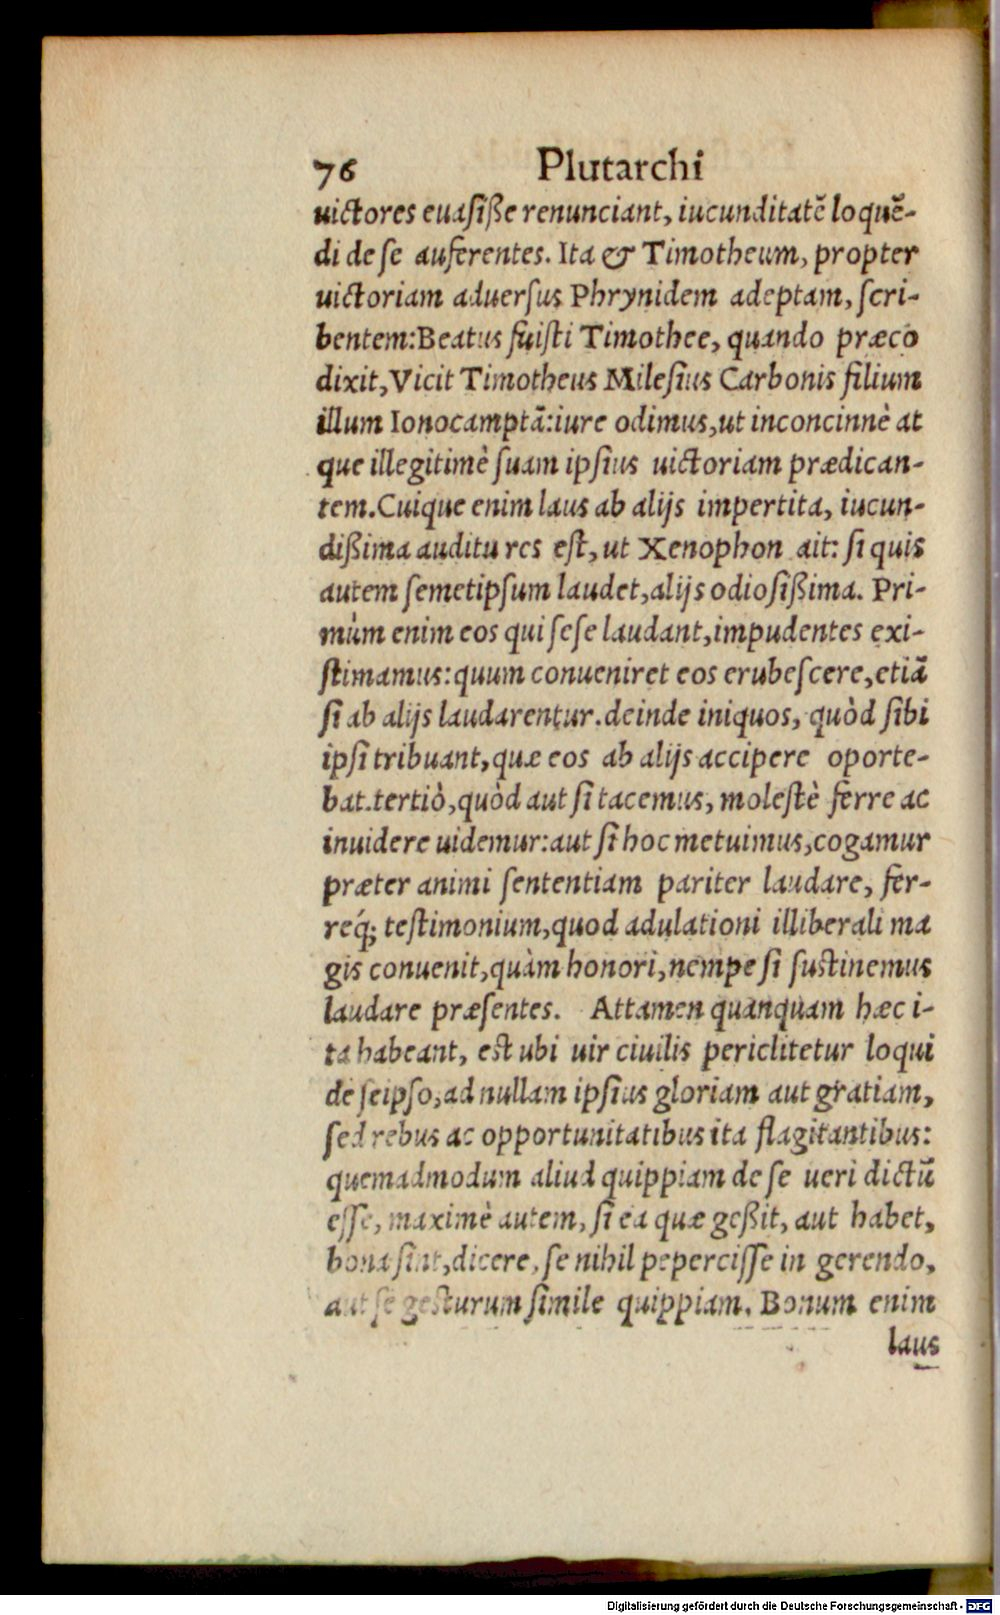 76 Plutarchi
uictores euasiße renunciant, iucunditatē loquē-
di de se auferentes. Ita & Timotheum, propter
uictoriam aduersus Phrynidem adeptam, scri-
bentem: Beatus fuisti Timothee, quando præco
dixit, Vicit Timotheus Milesius Carbonis filium
illum Ionocamptā: iure odimus, ut inconcinnè at
que illegitimè suam ipsius uictoriam prædican-
tem. Cuique enim laus ab alijs impertita, iucun-
dißima auditu res est, ut Xenophon ait: si quis
autem semetipsum laudet, alijs odiosißima. Pri-
mùm enim eos qui sese laudant, impudentes exi-
stimamus: quum conueniret eos erubescere, etiā
si ab alijs laudarentur. deinde iniquos, quòd sibi
ipsi tribuant, quæ eos ab alijs accipere oporte-
bat. tertiò, quòd aut si tacemus, molestè ferre ac
inuidere uidemur: aut si hoc metuimus, cogamur
præter animi sententiam pariter laudare, fer-
req́; testimonium, quod adulationi illiberali ma
gis conuenit, quàm honori, nempe si sustinemus
laudare præsentes. Attamen quanquam hæc i-
ta habeant, est ubi uir ciuilis periclitetur loqui
de seipso, ad nullam ipsius gloriam aut gratiam,
sed rebus ac opportunitatibus ita flagitantibus:
quemadmodum aliud quippiam de se ueri dictū
esse, maximè autem, si ea quæ geßit, aut habet,
bona sint, dicere, se nihil pepercisse in gerendo,
aut se gesturum simile quippiam. Bonum enim
laus
Digitalisierung gefördert durch die Deutsche Forschungsgemeinschaft - DFG